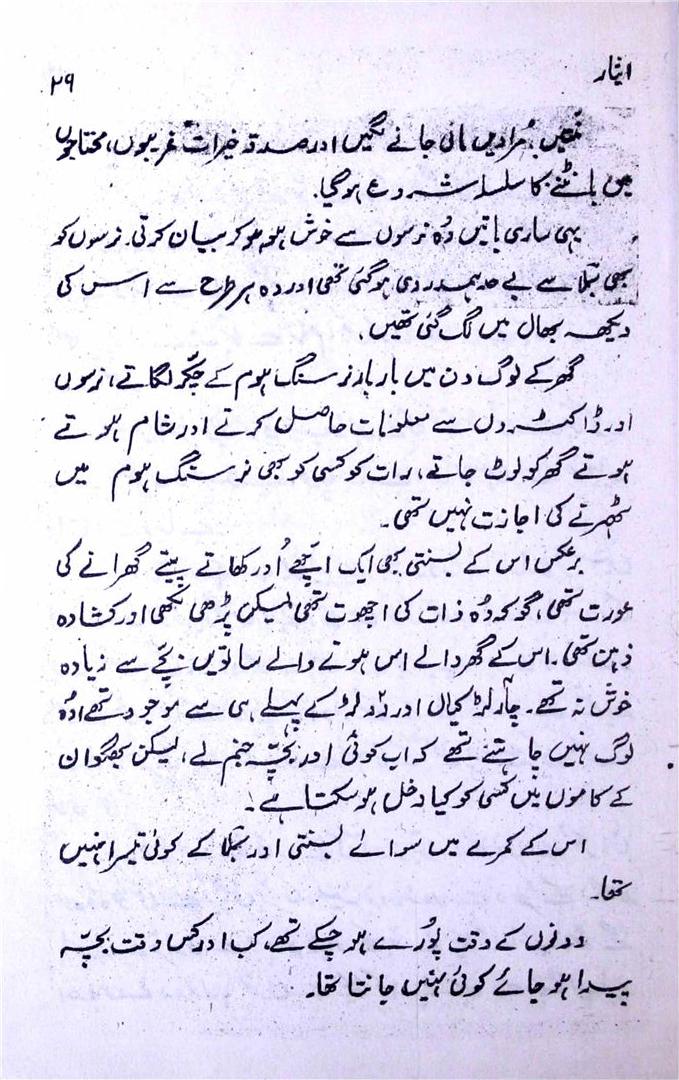 ایثار
۲۹
منتیں، مُرادیں مانی جانے لگیں اور صدقہ خیرات غریبوں، محتاجوں
میں بانٹنے کا سلسلہ شروع ہوگیا۔
یہی ساری باتیں وہ نرسوں سے خوش ہو ہو کر بیان کرتی۔ نرسوں کو
بھی شکلا سے بے حد ہمدردی ہوگئی تھی اور وہ ہر طرح سے اس کی
دیکھ بھال میں لگ گئی تھیں۔
گھر کے لوگ دن میں بار بار نرسنگ ہوم کے چکّر لگاتے، نرسوں
اور ڈاکٹروں سے معلومات حاصل کرتے اور شام ہوتے
ہوتے گھر کو لوٹ جاتے، رات کو کسی کو بھی نرسنگ ہوم میں
ٹھہرنے کی اجازت نہیں تھی۔
برعکس اس کے بسنتی بھی ایک اچھّے اُور کھاتے پیتے گھرانے کی
عورت تھی، گو کہ وُہ ذات کی اچھوت تھی لیکن پڑھی لکھی اور کشادہ
ذہن تھی۔ اس کے گھر والے اس ہونے والے ساتویں بچّے سے زیادہ
خوش نہ تھے۔ چار لڑکیاں اور دو لڑکے پہلے ہی سے موجود تھے وہ
لوگ نہیں چاہتے تھے کہ اب کوئی اور بچّہ جنم لے، لیکن بھگوان
کے کاموں میں کسی کو کیا دخل ہوسکتا ہے۔
اس کے کمرے میں سوائے بسنتی اور شکلا کے کوئی تیسرا نہیں
تھا۔
دونوں کے وقت پُورے ہوچکے تھے، کب اور کس وقت بچّہ
پیدا ہو جائے کوئی نہیں جانتا تھا۔